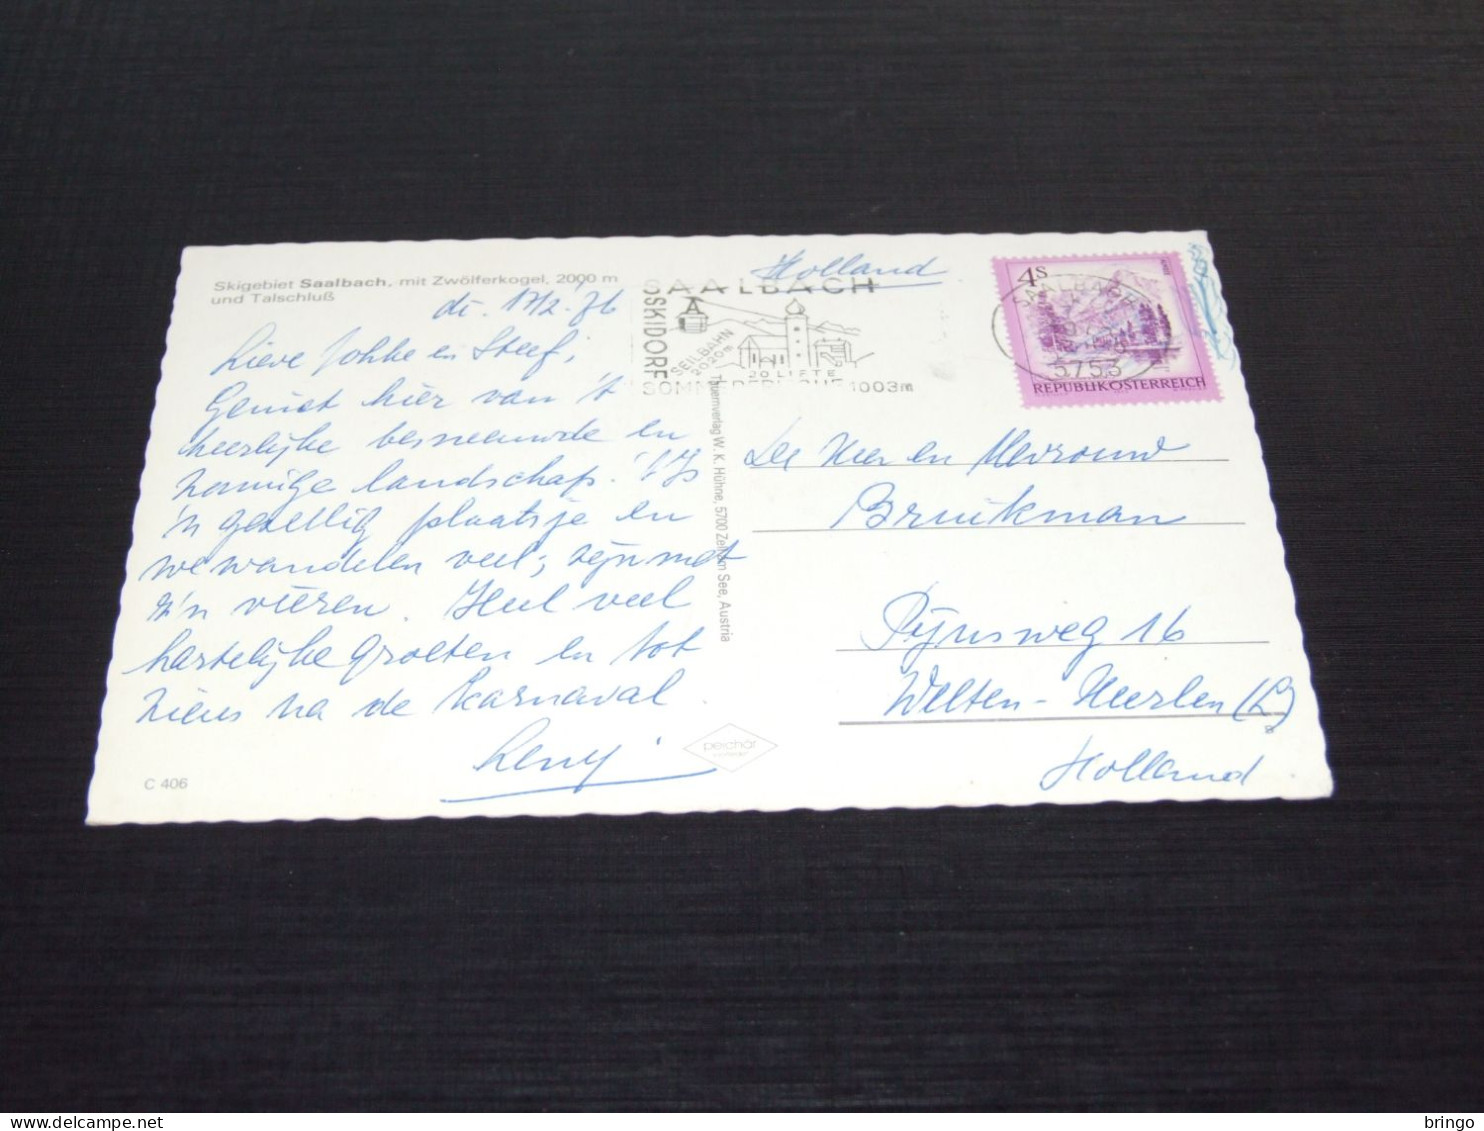 Skigebiet Saalbach, mit Zwölferkogel, 2000 m
und Talschluß
di. 17/2 '76
Lieve Jokke en Steef,
Geniet hier van 't
heerlijke besneeuwde en
zonnige landschap. 't Is
'n gezellig plaatsje en
we wandelen veel; zijn met
z'n vieren. Heel veel
hartelijke groeten en tot
ziens na de karnaval
Leny
C 406
Tauernverlag W. K. Hühne, 5700 Zell am See, Austria
perchar
Holland
SAALBACH
SKIDORF
SEILBAHN
2020m
30 LIFTE
SOMMERFRISCHE 1003m
4S
SAALBACH
5753
REPUBLIK ÖSTERREICH
De Heer en Mevrouw
Bruikman
Pijnsweg 16
Welten-Heerlen (L)
Holland
delcampe.net
bringo